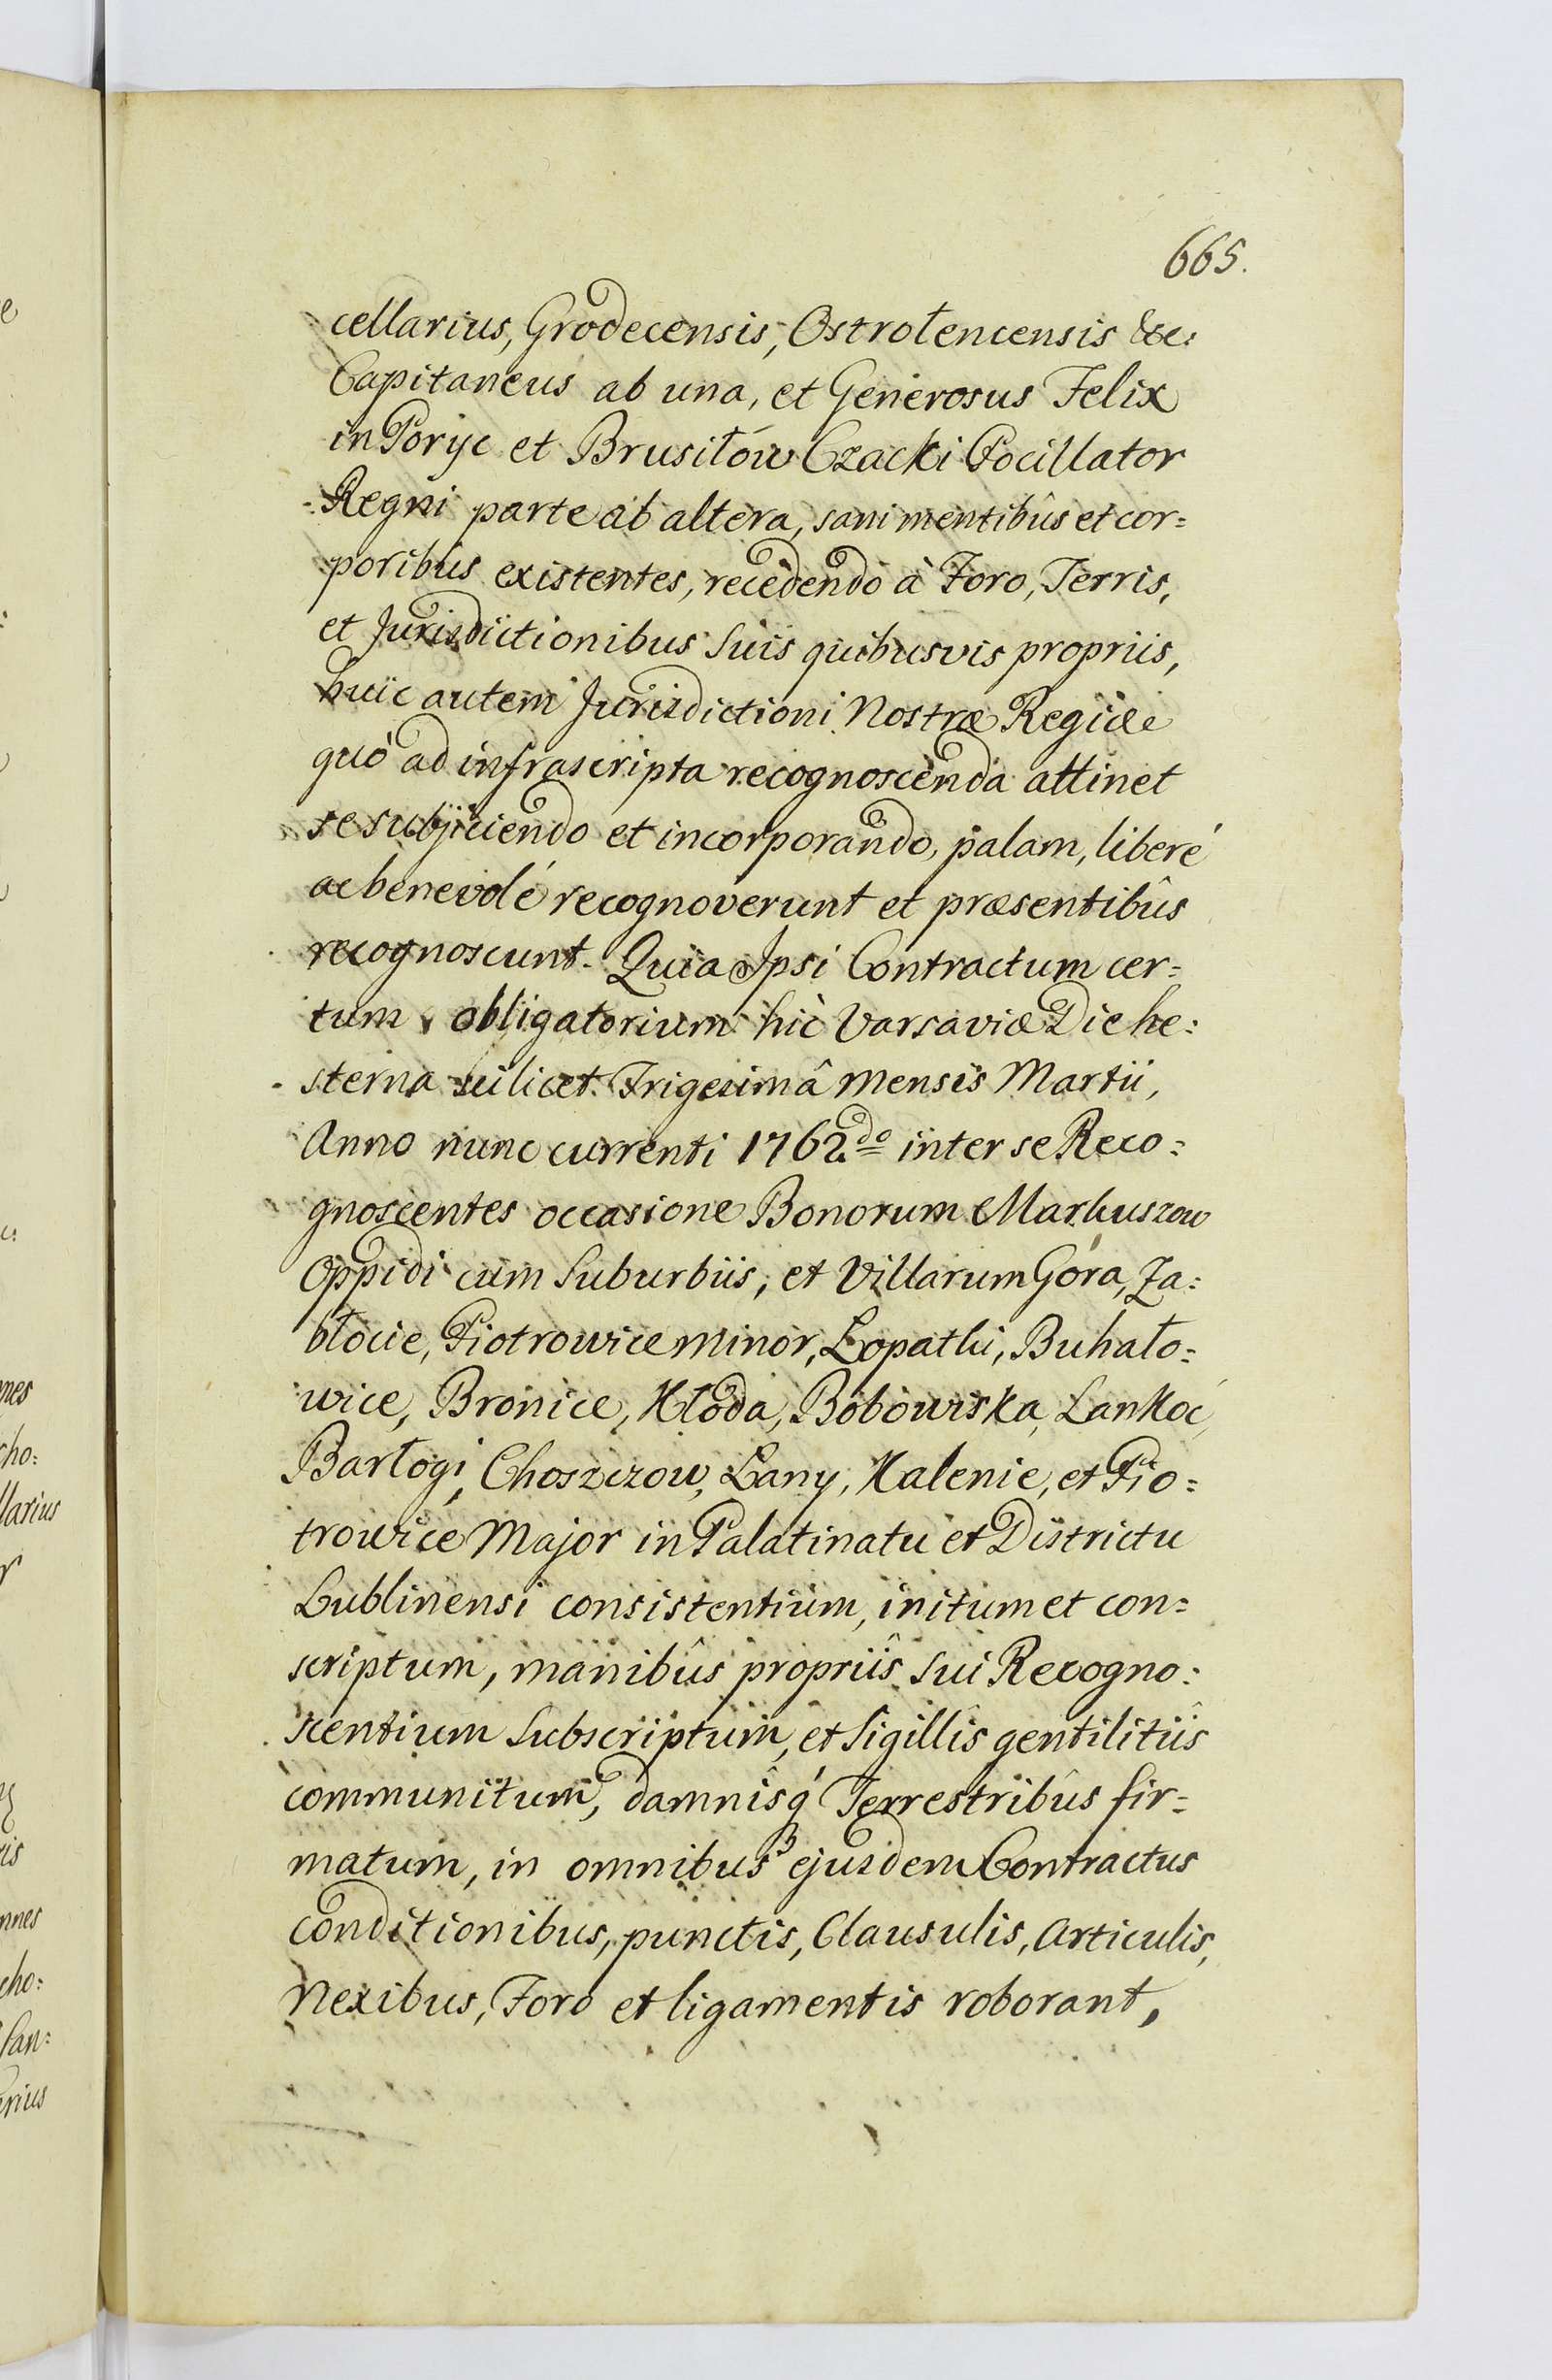 665.
cellarius, Grodecensis, Ostrołencensis &c:
Capitaneus ab una, et Generosus Felix
in Poryc et Brusiłow Czacki Pocillator
Regni parte ab altera, sani mentibûs et cor=
poribus existentes, recedendo à Foro, Terris,
et Jurisdictionibus suis quibusvis propriis,
huic autem Jurisdictioni Nostræ Regiæ
quò ad infrascripta recognoscenda attinet
se subjiciendo et incorporando, palam, liberé
ac benevolé recognoverunt et præsentibûs
recognoscunt. Quia Ipsi Contractum cer=
tum obligatorium hic Varsaviæ Die he=
sterna scilicet Trigesimâ mensis Martii,
Anno nunc currenti 1762do inter se Reco=
gnoscentes occasione Bonorum Markuszow
Oppidi cum Suburbiis, et Villarum Góra, Za=
błocie, Piotrowice minor, Łopatki, Buhało=
wice, Bronice, Kłoda, Bobowiska, Łankoć,
Barłogi, Choszczow, Łany, Kalenie, et Pio=
trowice Major in Palatinatu et Districtu
Lublinensi consistentium, initum et con=
scriptum, manibûs propriîs sui Recogno=
scentium subscriptum, et Sigillîs gentilitiîs
communitum, damnîsq́ Terrestribûs fir=
matum, in omnibus ejusdem Contractus
conditionibus, punctis, Clausulis, Articulis,
Nexibus, Foro et ligamentis roborant,